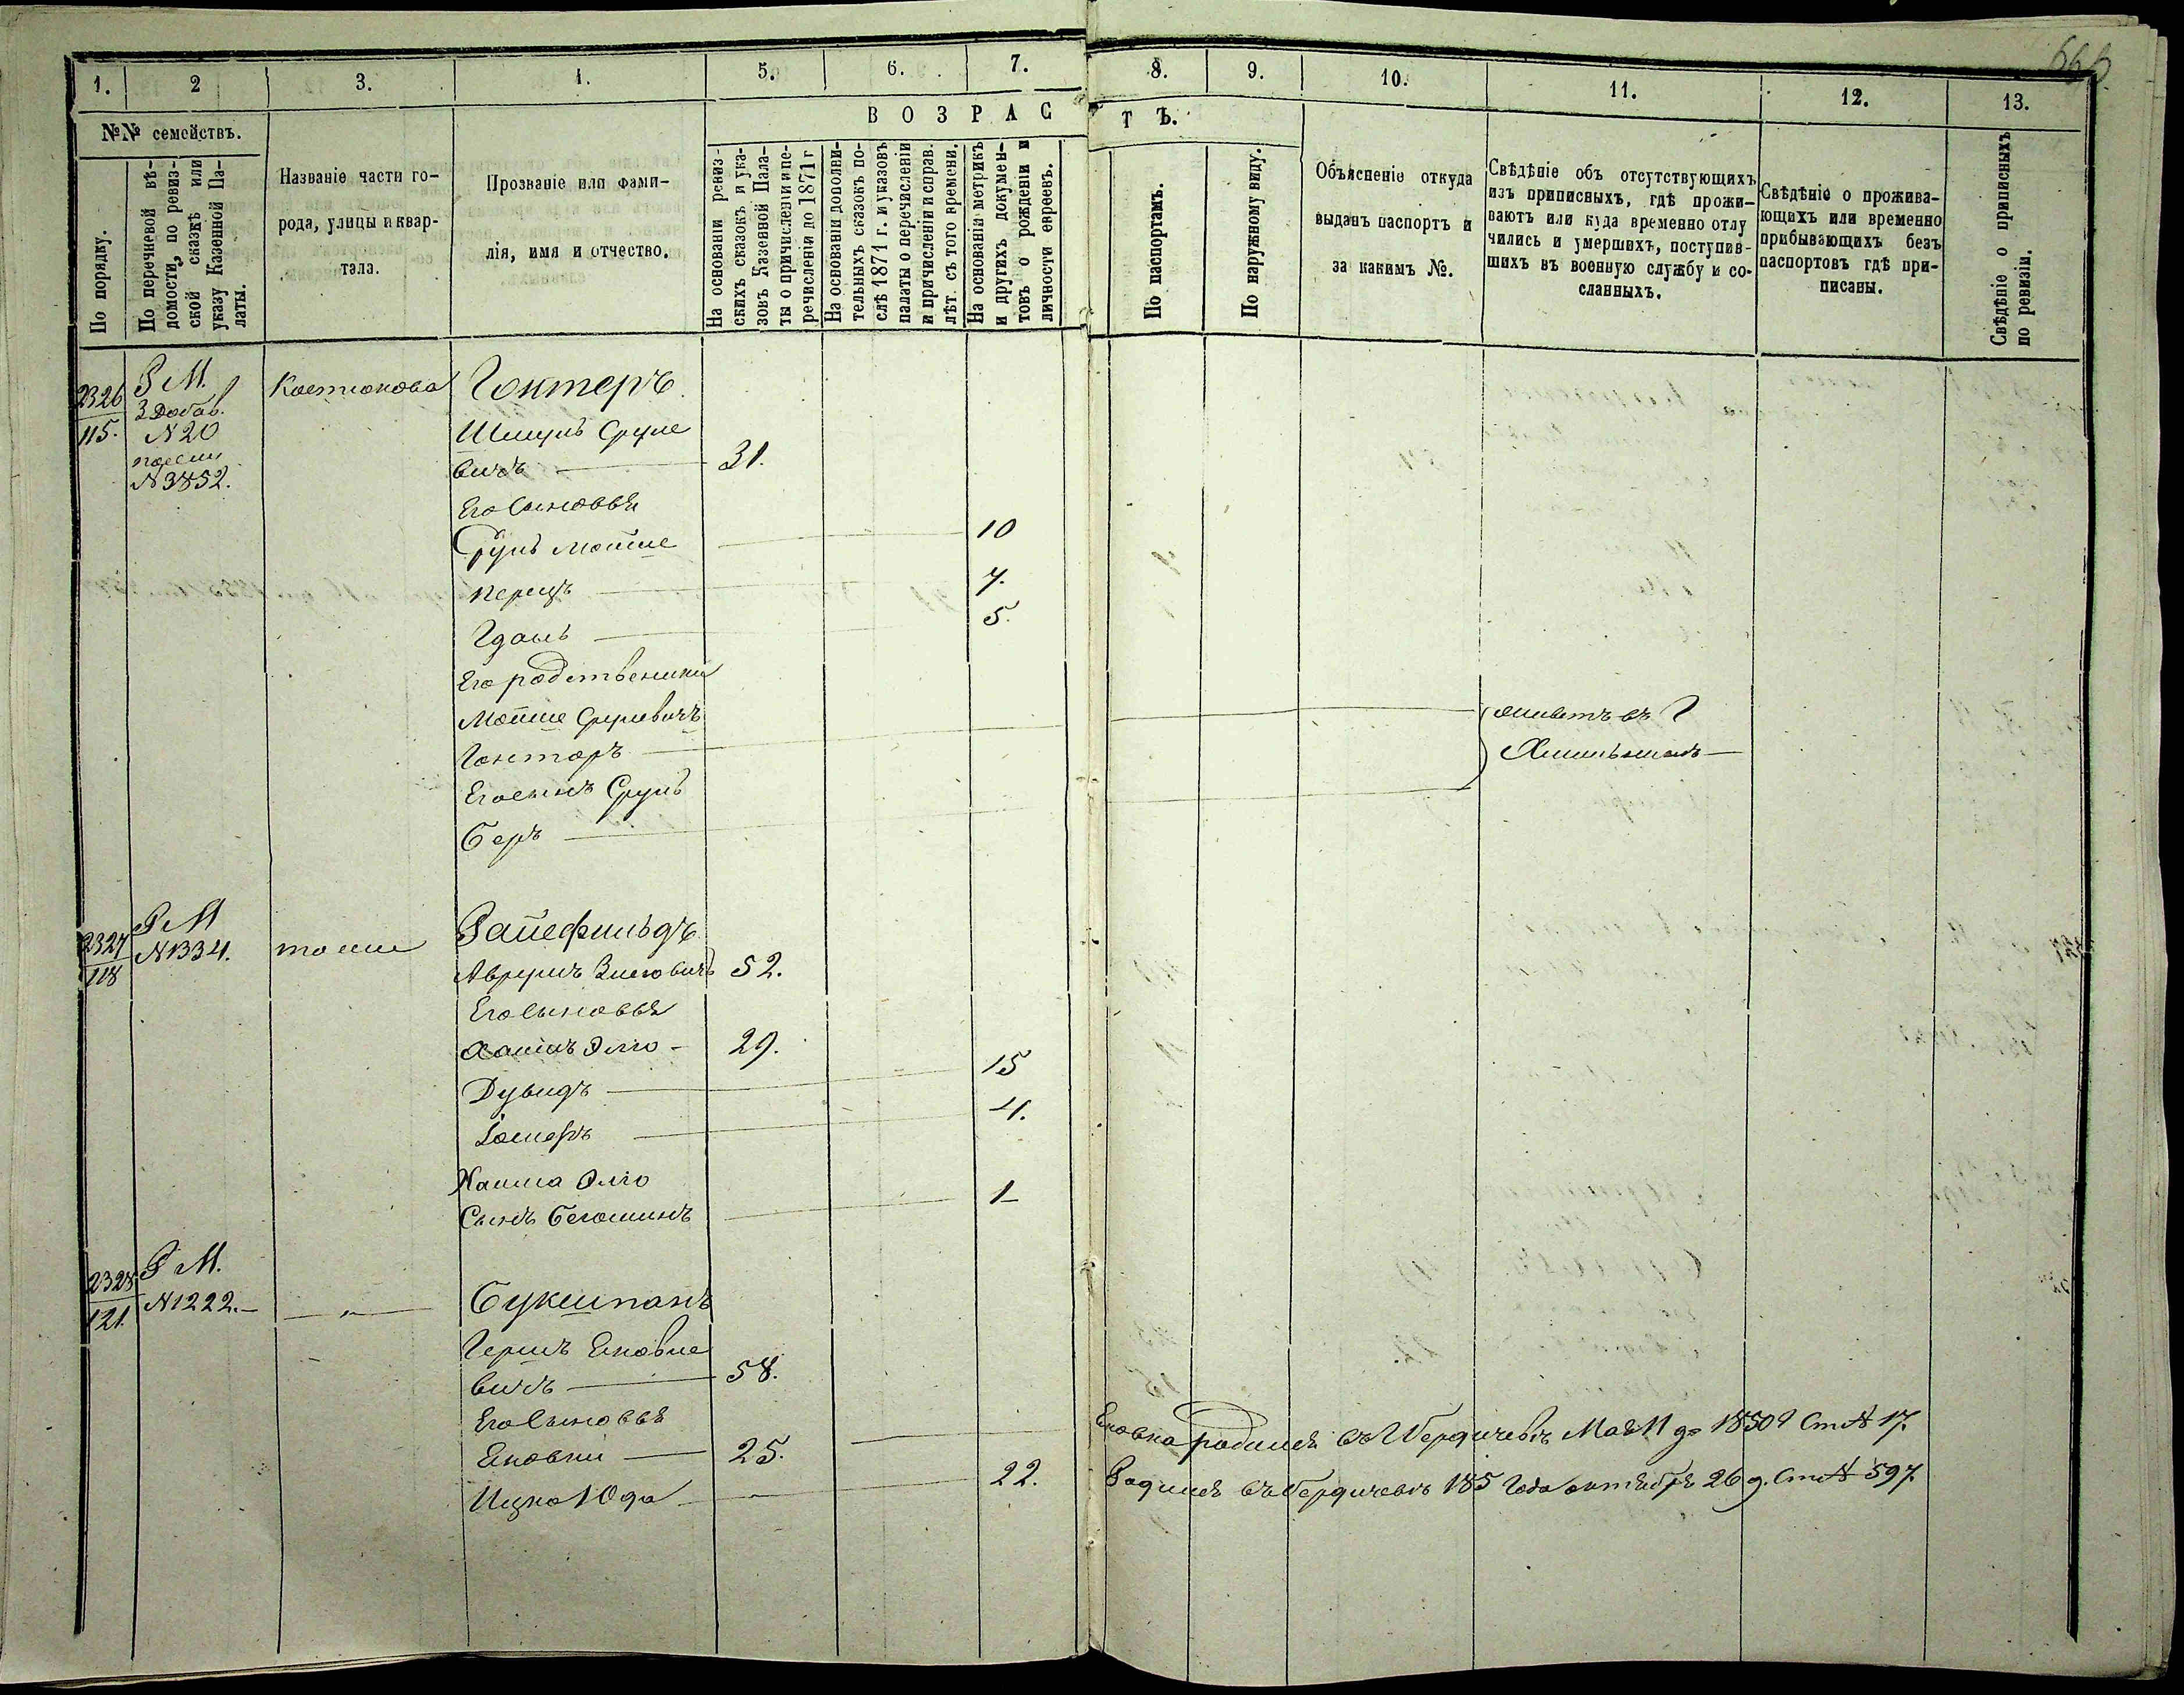 666
1.
2
3.
4.
5.
6.
7.
8.
9.
10.
11.
12.
13.
№№ семействъ.
По порядку.
По перечневой вѣ-
домости, по ревиз-
ской сказкѣ или
указу Казенной Па-
латы.
Названіе части го-
рода, улицы и квар-
тала.
Прозваніе или фами-
лія, имя и отчество.
ВОЗРАСТЪ.
На основаніи ревиз-
скихъ сказокъ и ука-
зовъ Казенной Пала-
ты о причислени и пе-
речислени до 1871 г
На основаніи дополни-
тельныхъ сказокъ по-
слѣ 1871 г. и указовъ
палаты о перечисленіи
и причисленіи и справ.
лѣт. съ того времени.
На основаніи метрикъ
и другихъ докумен-
товъ о рожденіи и
личности евреевъ.
По паспортамъ.
По наружному виду.
Объясненіе откуда
выданъ паспортъ и
за какимъ №.
Свѣдѣніе объ отсутствующихъ
изъ приписныхъ, гдѣ прожи-
ваютъ или куда временно отлу
чились и умершихъ, поступив-
шихъ въ военную службу и со-
сланныхъ.
Свѣдѣніе о прожива-
ющихъ или временно
прибывающихъ безъ
паспортовъ гдѣ при-
писаны.
Свѣдѣніе о приписныхъ
по ревизіи.
2326
115.
Р М.
3 Добав.
N 20
N 3852.
Костюкова
Гоктеръ
Шмуль Сруле
вичъ 31.
Его Сыновья
Сруль Мошше 10
Перецъ 7.
Гдаль 5.
Его родственики
Мошше Срулевичъ живетъ въ Г
Гонторъ Хмильникъ
Его сынъ Сруль
Беръ
2327
118
Р М
N 1334.
то же
Райефильдъ
Аврумъ Зисковичъ 52.
Его Сыновья
Хаимъ Элio 29.
Дувидъ 15
Іосифъ 4.
Хаима Элio
Сынъ Беюминъ 1
2328
121.
Р М.
N 1222.
"
Букшпанъ
Гершъ Яновле
вичъ 58.
Его Сыновья
Яновки 25. родился въ Г Бердичевѣ Мая 11 д 1850 г Ст N 17.
Ицко Юда 22. Родился въ Бердичевѣ 185 года октября 26 д. Ст N 597.